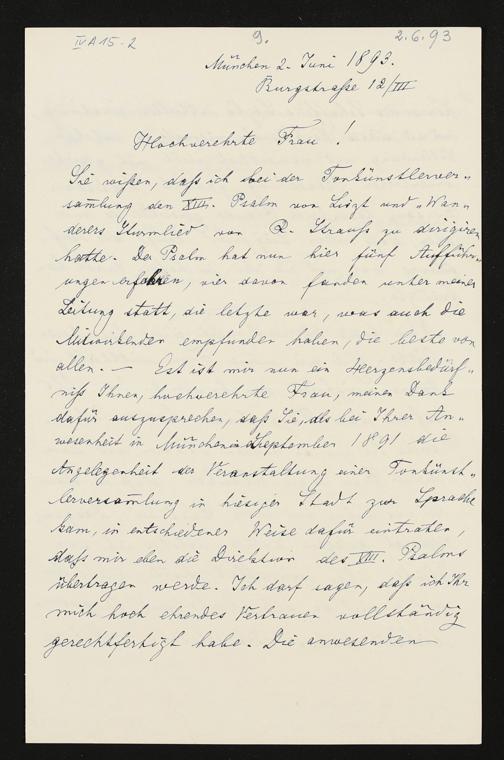 IV A 15-2 9. 2.6.93
München 2. Juni 1893.
Burgstraße 12/III
Hochverehrte Frau!
Sie wißen, daß ich bei der Tonkünstlerver-
sammlung den XIII. Psalm von Liszt und Wan-
derers Sturmlied von R. Strauß zu dirigiren
hatte. Der Psalm hat nun hier fünf Aufführ-
ungen erfahren, vier davon fanden unter meiner
Leitung statt, die letzte war, was auch die
Mitwirkenden empfunden haben, die beste von
allen. — Es ist mir nun ein Herzensbedürf-
niß Ihnen, hochverehrte Frau, meinen Dank
dafür auszusprechen, daß Sie, als bei Ihrer An-
wesenheit in München im September 1891 die
Angelegenheit der Veranstaltung einer Tonkünst-
lerversammlung in hiesiger Stadt zur Sprache
kam, in entschiedener Weise dafür eintraten,
daß mir eben die Direktion des XIII. Psalms
übertragen werde. Ich darf sagen, daß ich Ihr
mich hoch ehrendes Vertrauen vollständig
gerechtfertigt habe. Die anwesenden